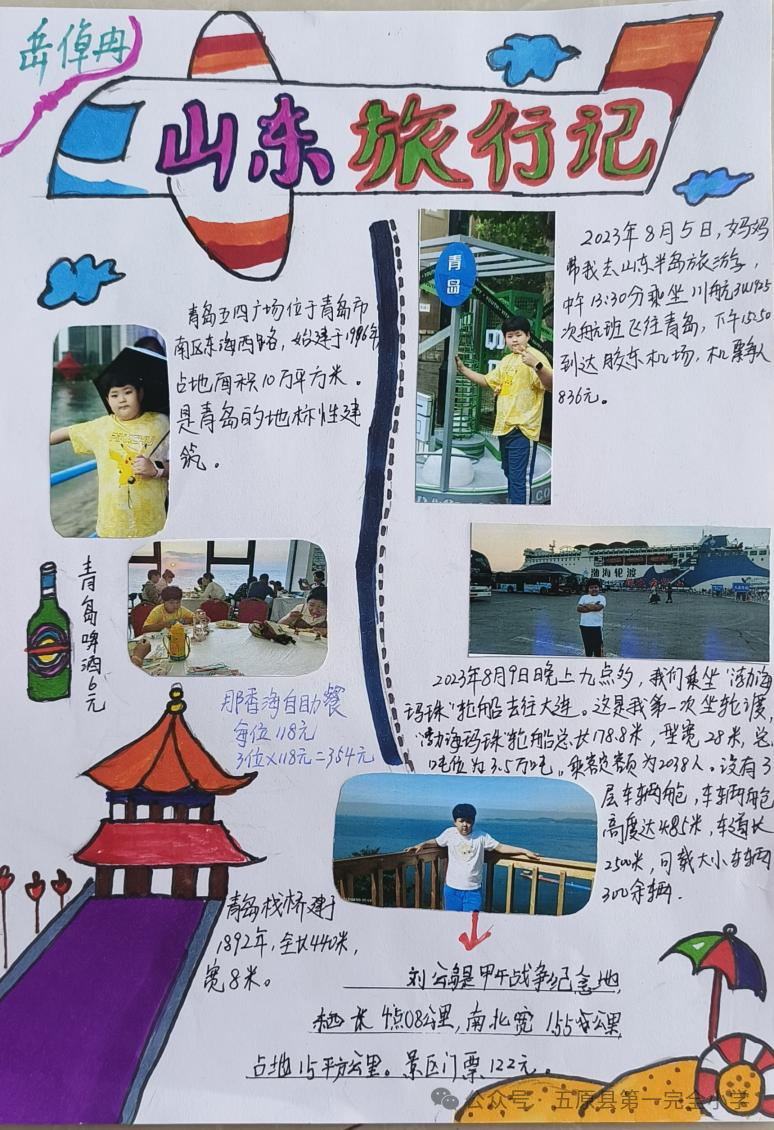 岳倬冉
山东旅行记
青岛五四广场位于青岛市
南区东海西路，始建于1986年
占地面积10万平方米。
是青岛的地标性建
筑。
青岛
2023年8月5日，妈妈
带我去山东半岛旅游，
中午13:30分乘坐川航3U1925
次航班飞往青岛，下午15:50
到达胶东机场，机票每人
836元。
青岛啤酒6元
那香海自助餐
每位118元
3位×118元=354元
渤海轮渡
2023年8月9日晚上九点多，我们乘坐“渤海
玛珠”轮船去往大连。这是我第一次坐轮渡，
“渤海玛珠”轮船总长178.8米，型宽28米，总
吨位为3.5万吨。乘客定额为2038人。设有3
层车辆舱，车辆舱
高度达4.85米，车道长
2500米，可载大小车辆
300余辆.
青岛栈桥建于
1892年，全长440米，
宽8米。
刘公岛是甲午战争纪念地，
东西长4点08公里，南北宽1.55公里
占地15平方公里。景区门票122元。
公众号·五原县第一完全小学